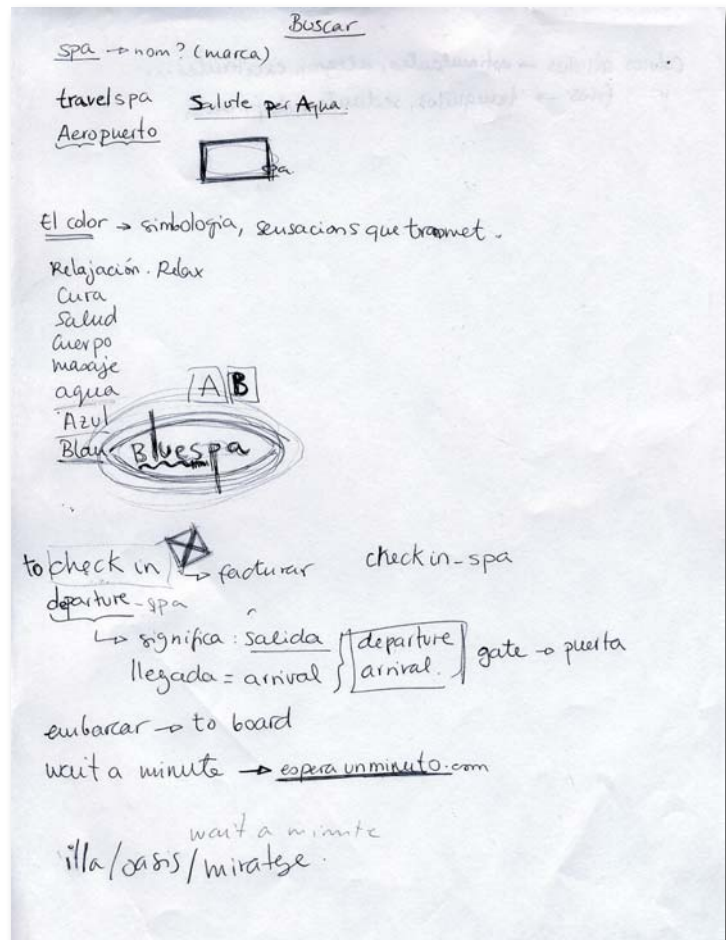 Buscar
spa → nom? (marca)
travelspa Salute per Aqua
Aeropuerto
spa
El color → simbologia, sensacions que transmet.
Relajación. Relax
Cura
Salud
Cuerpo
masaje
agua
A B
Azul
Blau
Bluespa
to check in → facturar check in-spa
departure-spa
→ significa: salida departure gate → puerta
llegada = arrival arrival.
embarcar → to board
wait a minute → espera un minuto.com
wait a minute
illa/oasis/miratge.